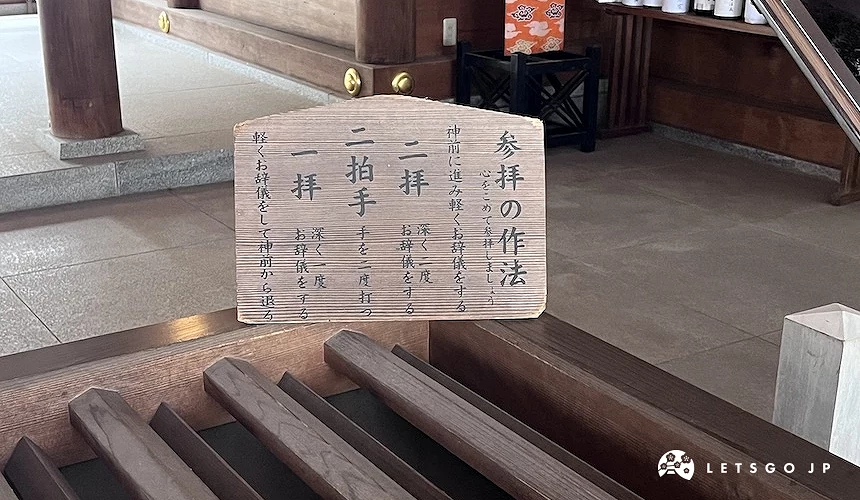 参拝の作法
心をこめて参拝しましょう
神前に進み軽くお辞儀をする
二拝
深く二度
お辞儀をする
二拍手
手を二度打つ
一拝
深く一度
お辞儀をする
軽くお辞儀をして神前から退る
LETSGO JP